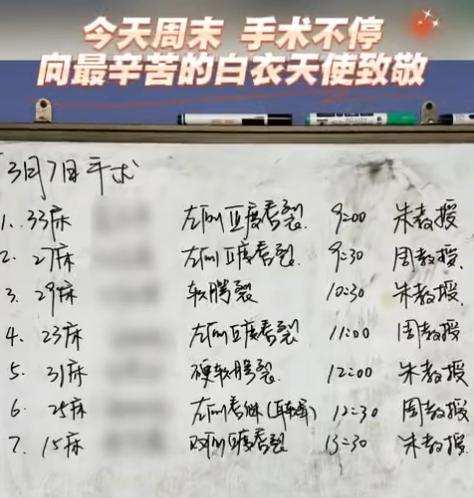 今天周末 手术不停
向最辛苦的白衣天使致敬
3月7日手术
1. 33床 左侧Ⅲ度唇裂 9:00 朱教授
2. 27床 左侧Ⅲ度唇裂. 9:30 周教授.
3. 29床 软腭裂 10:30 朱教授.
4. 23床 左侧Ⅲ度唇裂 11:00 周教授
5. 31床 硬软腭裂. 12:00 朱教授.
6. 25床 左侧唇继( 12:30 周教授
7. 15床 双侧Ⅲ度唇裂 13:30 朱教授.